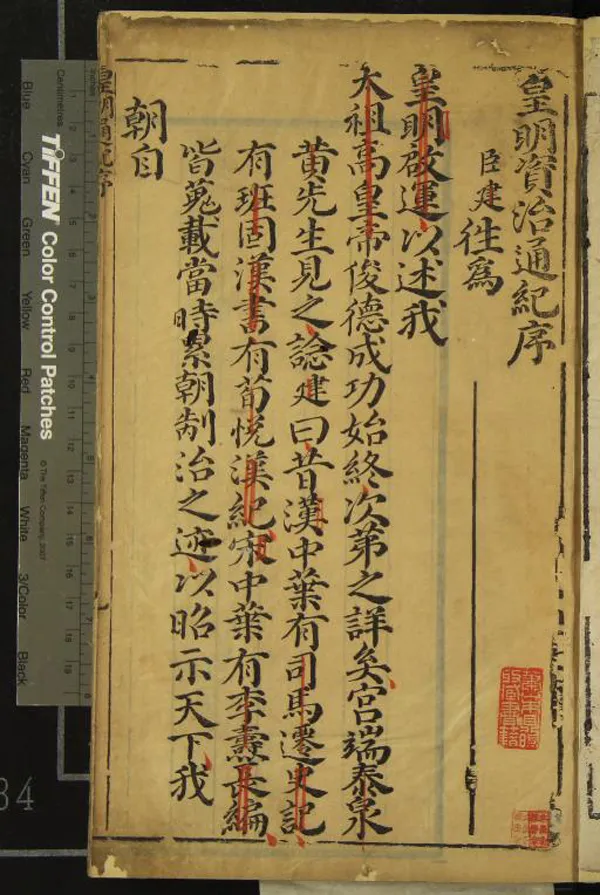 皇明資治通紀序
臣建徃爲
皇明啟運以述我
太祖高皇帝俊德成功始終次第之詳矣宮端泰泉
黄先生見之諗建曰昔漢中葉有司馬遷史記
有班固漢書有荀悅漢紀宋中葉有李燾長編
皆蒐載當時累朝制治之迹以昭示天下我
朝自
皇明通紀序
Centimetres
Inches
TIFFEN Color Control Patches
© The Tiffen Company, 2007
Blue
Cyan
Green
Yellow
Red
Magenta
White
3/Color
Black
34